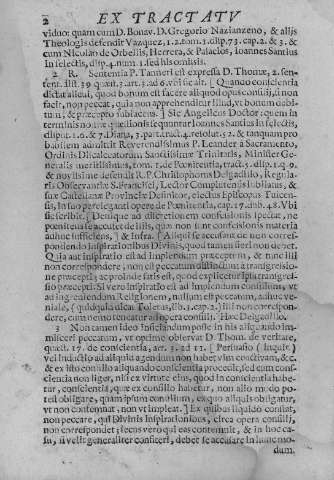 2 EX TRACTATV
viduo: quam cum D. Bonav. D. Gregorio Nazianzeno, & alijs
Theologis defendit Vazquez, 1. 2. tom. 1. disp. 73. cap. 2. & 3. &
cum Nicolao de Orbellis, Herrera, & Palacios, Ioannes Santius
in selectis, disp. 4. num. 1. sed his omissis.
2 R. Sententia P. Tanneri est expressa D. Thomæ, 2. sen-
tent. dist. 39 quæst. 3. art. 3. ad 6. vbi sic ait. [ Quando conscientia
dictat alicui, quod bonum est facere aliquod opus consilij, si non
facit, non peccat, quia non apprehendit illud, vt bonum debi-
tum, & præcepto subiacens. ] Sic Angelicus Doctor: quem in
terminis nostræ quæstionis sequuntur Ioannes Santius in selectis,
disput. 1. 6. & 7. Diana, 3. part. tract. 4. resolut. 52. & tanquam pro
babilem admittit Reverendissimus P. Leander à Sacramento,
Ordinis Discalceatorum Sanctissimæ Trinitatis, Minister Gene-
ralis meritissimus, tom. 1. de Pœnitentia, tract. 5. disp.
& novissimè defendit R. P. Christophorus Delgadillo, Regula-
ris Observantiæ S. Francisci, Lector Complutensis Iubilatus, &
suæ Castellanæ Provinciæ Definitor, electus Episcopus
in suo pereleganti opere de Pœnitentia, cap. 17. dub. 48. Vbi
sic scribit. [ Denique ad discretionem confessionis spectat, ne
pœnitens se accuset de illis, quæ non sunt confessionis materia
adhuc sufficiens, ] & infra. [ Aliqui se accusant de non corres-
pondendo inspirationibus Divinis, quod tamen fieri non debet.
Quia aut inspiratio est ad implendum præceptum, & tunc illi
non correspondere, non est peccatum distinctum à transgressio-
ne præcepti; ac proinde satis est, quod explicetur ipsa transgres-
sio præcepti. Si vero inspiratio est ad implendum consilium, vt
ad ingrediendum Religionem, nullum est peccatum, adhuc ve-
niale, ( quidquid dicat Toletus, lib. 3. cap. 2. ) illi non correspon-
dere, cùm nemo teneatur ad opera consilij. Hæc Delgadillo.
3 Non tamen ideo inficiandum posse in his aliquando im-
misceri peccatum, vt optimè observat D. Thom. de veritate,
quæst. 17. de conscientia, art. 3. ad 2. [ Persuasio ( inquit )
vel inductio ad aliquid agendum non habet vim coactivam, & c.
& ex isto consilio aliquando conscientia procedit, sed cum cons-
cientia non liget, nisi ex virtute eius, quod in conscientia habe-
tur, conscientia, quæ ex consilio habetur, non alio modo po-
test obligare, quam ipsum consilium, ex quo aliquis obligatur,
vt non contemnat, non vt impleat. ] Ex quibus liquidò constat,
non peccare, qui Divinis Inspirationibus, circa opera consilij,
non correspondet; secus vero qui eas contemnit, & in hoc ca-
su, si velit generaliter confiteri, debet se accusare in hunc mo-
dum.